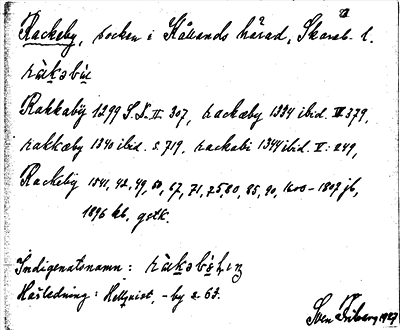 Rackeby, socken i Kållands härad, Skarab. l.
Rakkaby 1299 S.D. II: 307, rackæby 1334 ibid. IV 379,
rakkæby 1340 ibid. s 719, rackabi 1344 ibid. V: 249,
Rackeby 1541, 42, 49, 50, 67, 71, 75, 80, 85, 90, 1600–1809 jb,
1896 kb, gstk.
Indigenatsnamn:
Härledning: Hellquist, -by s 63.
Sven Ekberg 1927